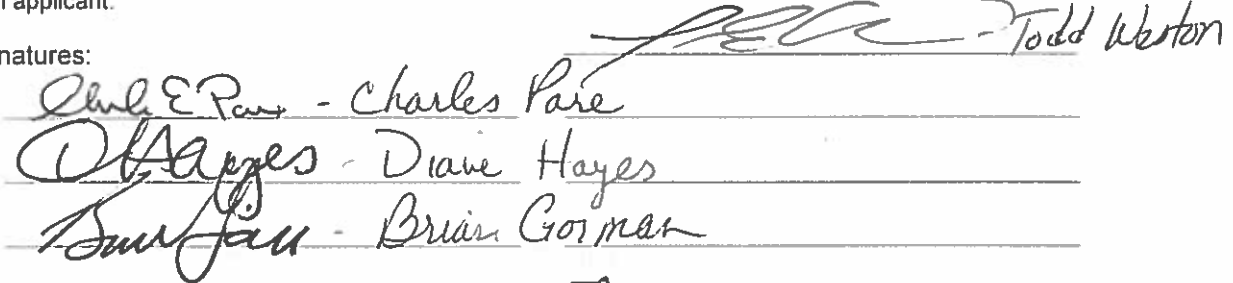 applicant.
- Todd Weston
natures:
- Charles Pare
DHayes - Diane Hayes
- Brian Gorman